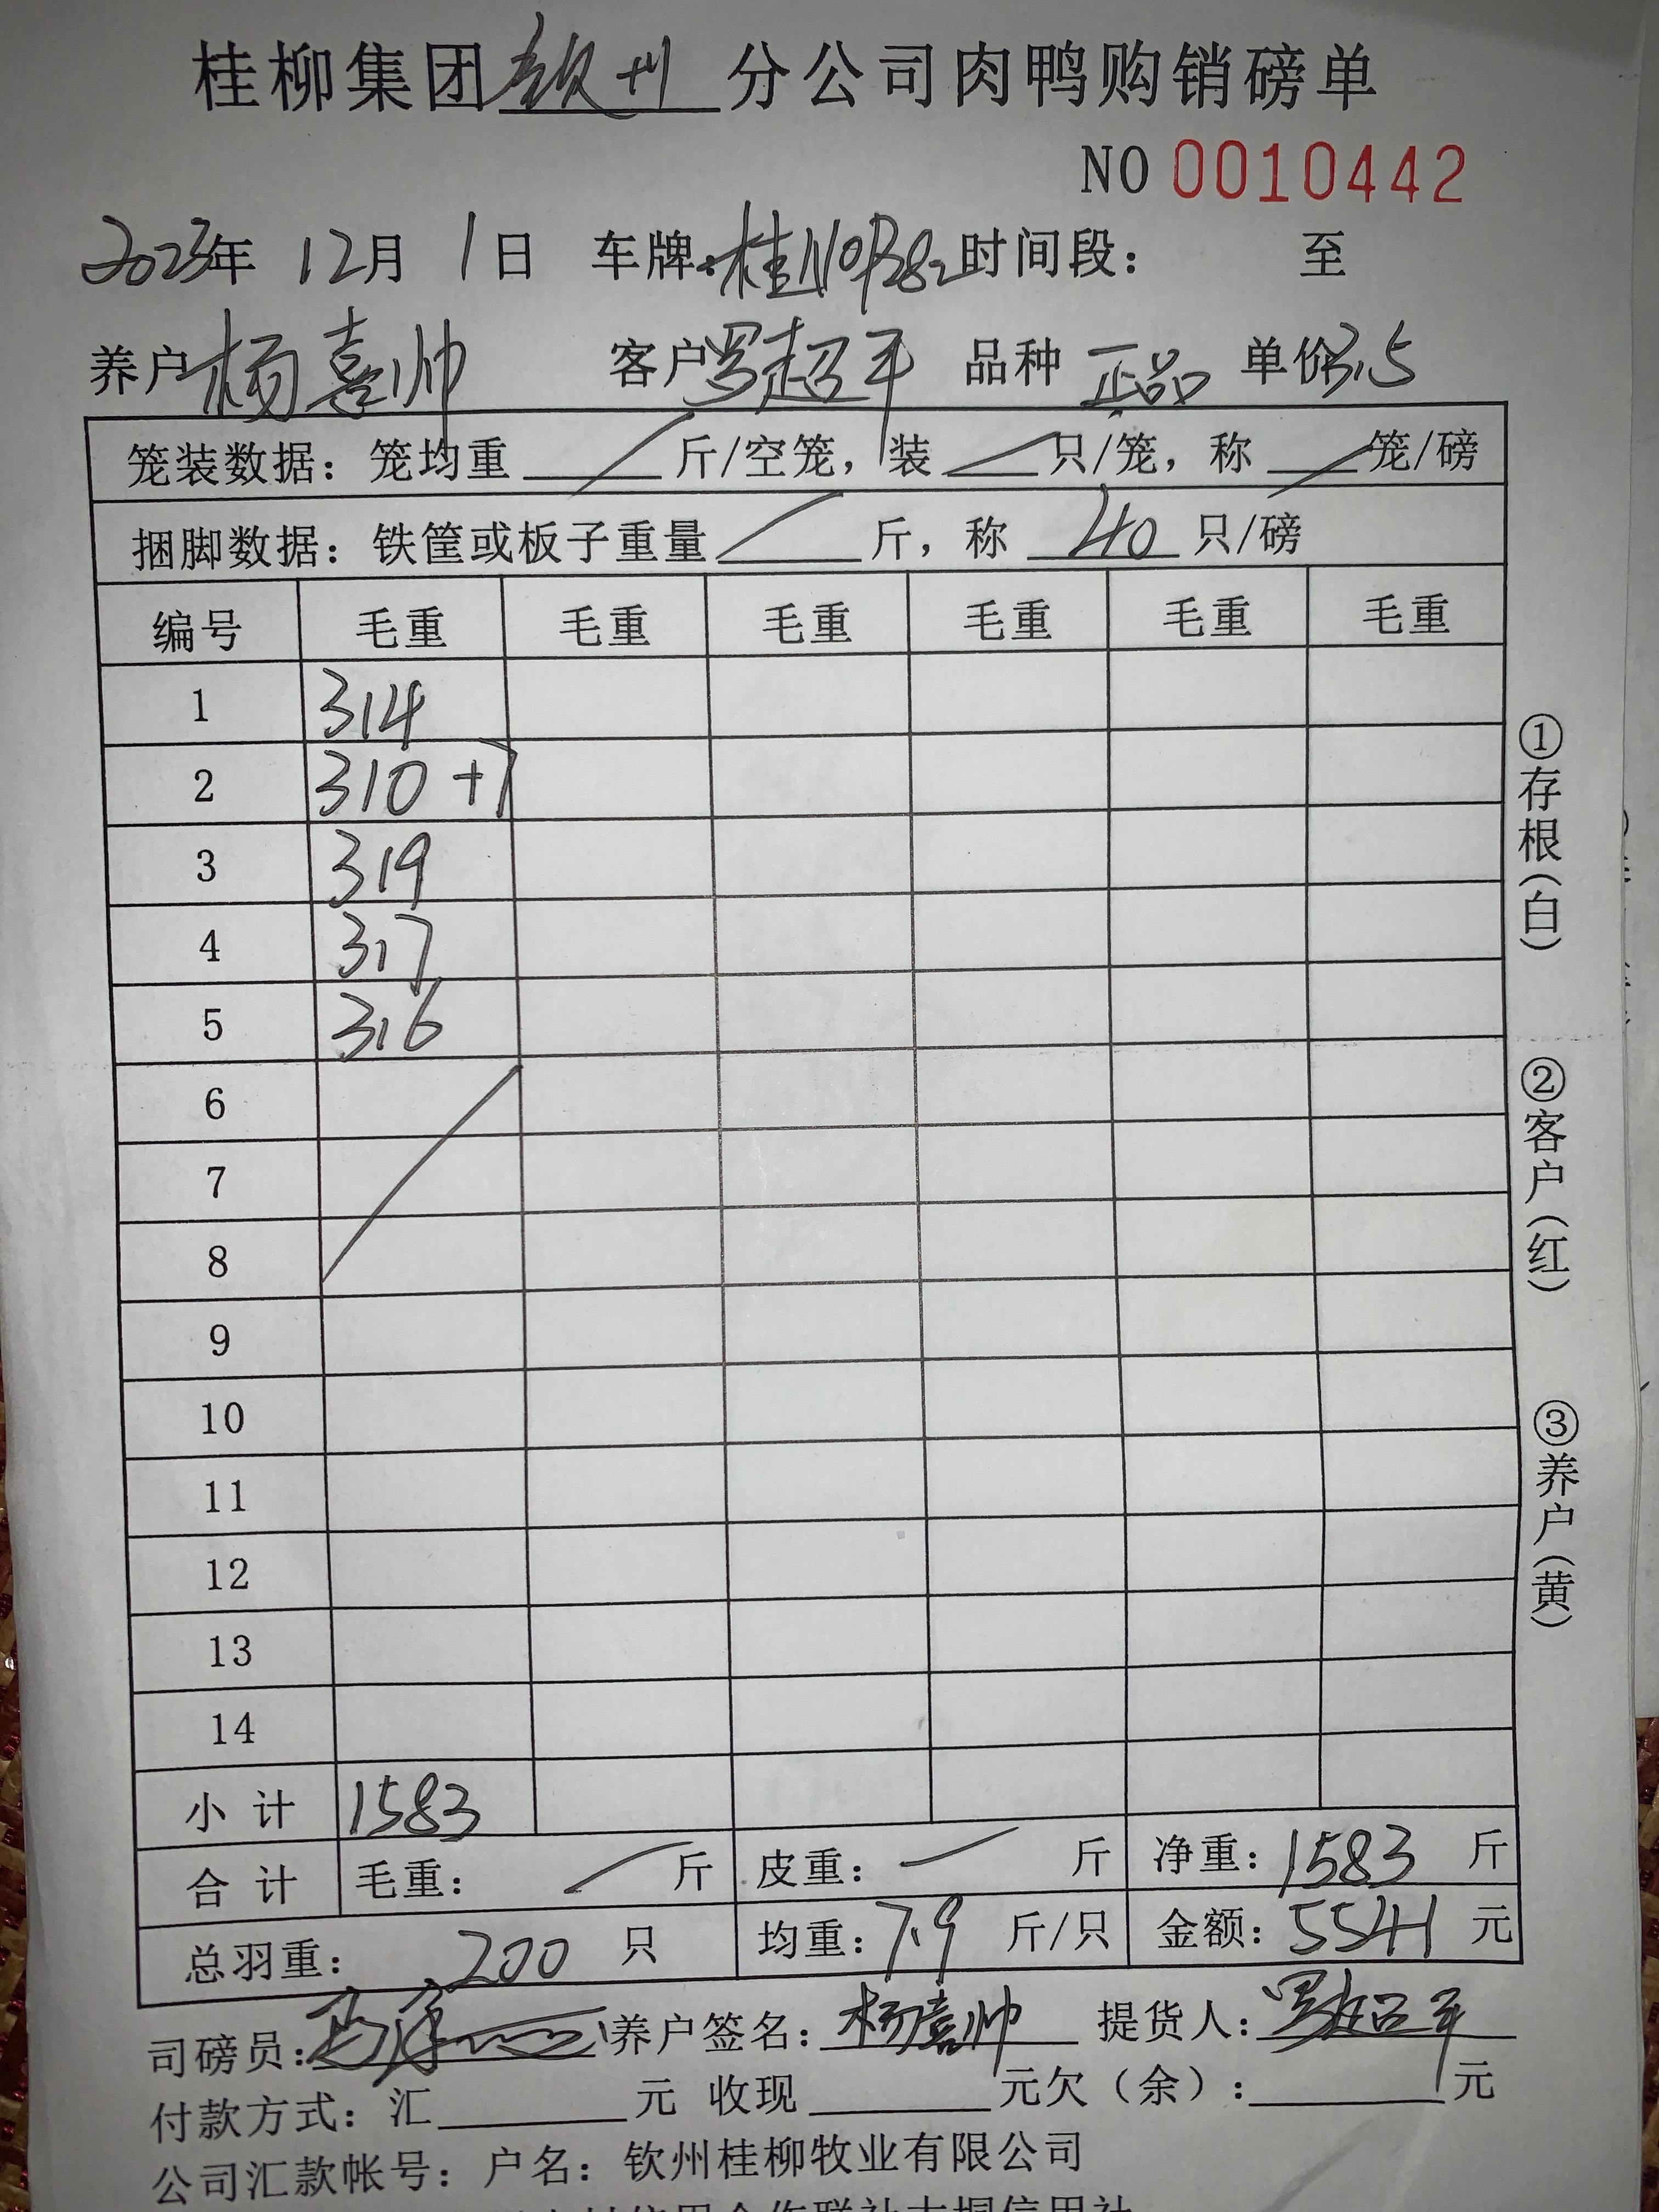 桂柳集团钦州分公司肉鸭购销磅单
NO 0010442
2023年 12月 1日 车牌:桂N0B282时间段: 至
养户杨喜帅 客户罗超平 品种 正品 单价3.5
笼装数据:笼均重 / 斤/空笼,装 / 只/笼,称 / 笼/磅
捆脚数据:铁筐或板子重量 / 斤,称 40 只/磅
编号 毛重 毛重 毛重 毛重 毛重 毛重
1 314
2 310 +7
3 319
4 317
5 316
6
7
8
9
10
11
12
13
14
小计 1583
合计 毛重: / 斤 皮重: / 斤 净重:1583 斤
总羽重: 200 只 均重:7.9 斤/只 金额:5541 元
①存根(白)
②客户(红)
③养户(黄)
司磅员: 养户签名:杨喜帅 提货人:罗超平
付款方式:汇 元 收现 元欠(余): 元
公司汇款帐号:户名:钦州桂柳牧业有限公司